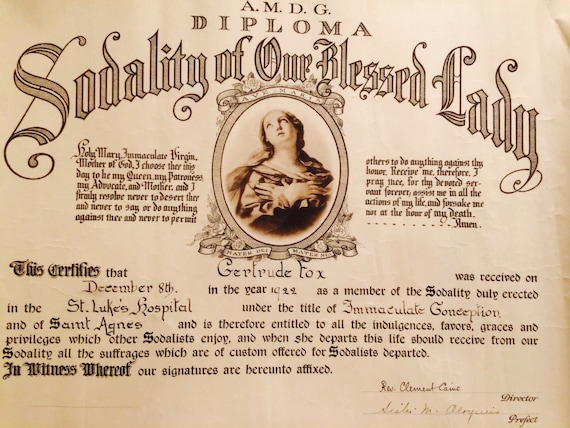 A.M.D.G.
DIPLOMA
Sodality of Our Blessed Lady
AVE MARIA
Holy Mary, Immaculate Virgin,
Mother of God, I choose thee this
day to be my Queen, my Patroness,
my Advocate, and Mother, and I
firmly resolve never to desert thee
and never to say or do anything
against thee and never to permit
others to do anything against thy
honor. Receive me, therefore, I
pray thee, for thy devoted ser-
vant forever; assist me in all the
actions of my life, and forsake me
not at the hour of my death.
- - - - - - - - - - Amen.
MATER DEI MATER MEI
This Certifies that Gertrude Fox was received on
December 8th. in the year 1922 as a member of the Sodality duly erected
in the St. Luke's Hospital under the title of Immaculate Conception
and of Saint Agnes and is therefore entitled to all the indulgences, favors, graces and
privileges which other Sodalists enjoy, and when she departs this life should receive from our
Sodality all the suffrages which are of custom offered for Sodalists departed.
In Witness Whereof our signatures are hereunto affixed.
Rev. Clement Caine
Director
Sister M. Aloysius
Prefect